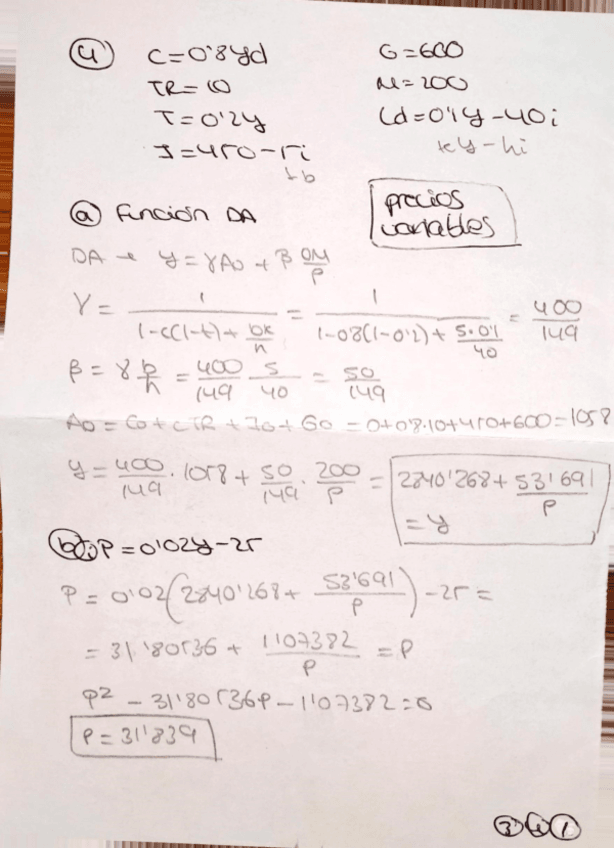 ④ C=0'8Yd G=600
TR=10 M=200
T=0'2y Ld=0'1y-40i
I=450-5i ky-hi
↳b
ⓐ Función DA precios variables
DA → y=γA0 + β OM/P
γ = 1/(1-c(1-t)+ bk/h) = 1/(1-08(1-0'2)+ 5·0'1/40) = 400/149
β = γ b/h = 400/149 5/40 = 50/149
A0 = C0 + cTR + I0 + G0 = 0+08·10+450+600=1058
y = 400/149 · 1058 + 50/149 · 200/P = 2840'268 + 53'691/P
=y
ⓑ P=0'02y-25
P = 0'02(2840'268+ 53'691/P) -25 =
= 31'80536 + 1'107382/P = P
P² - 31'80536P - 1'107382=0
P=31'839
③ ④ ①